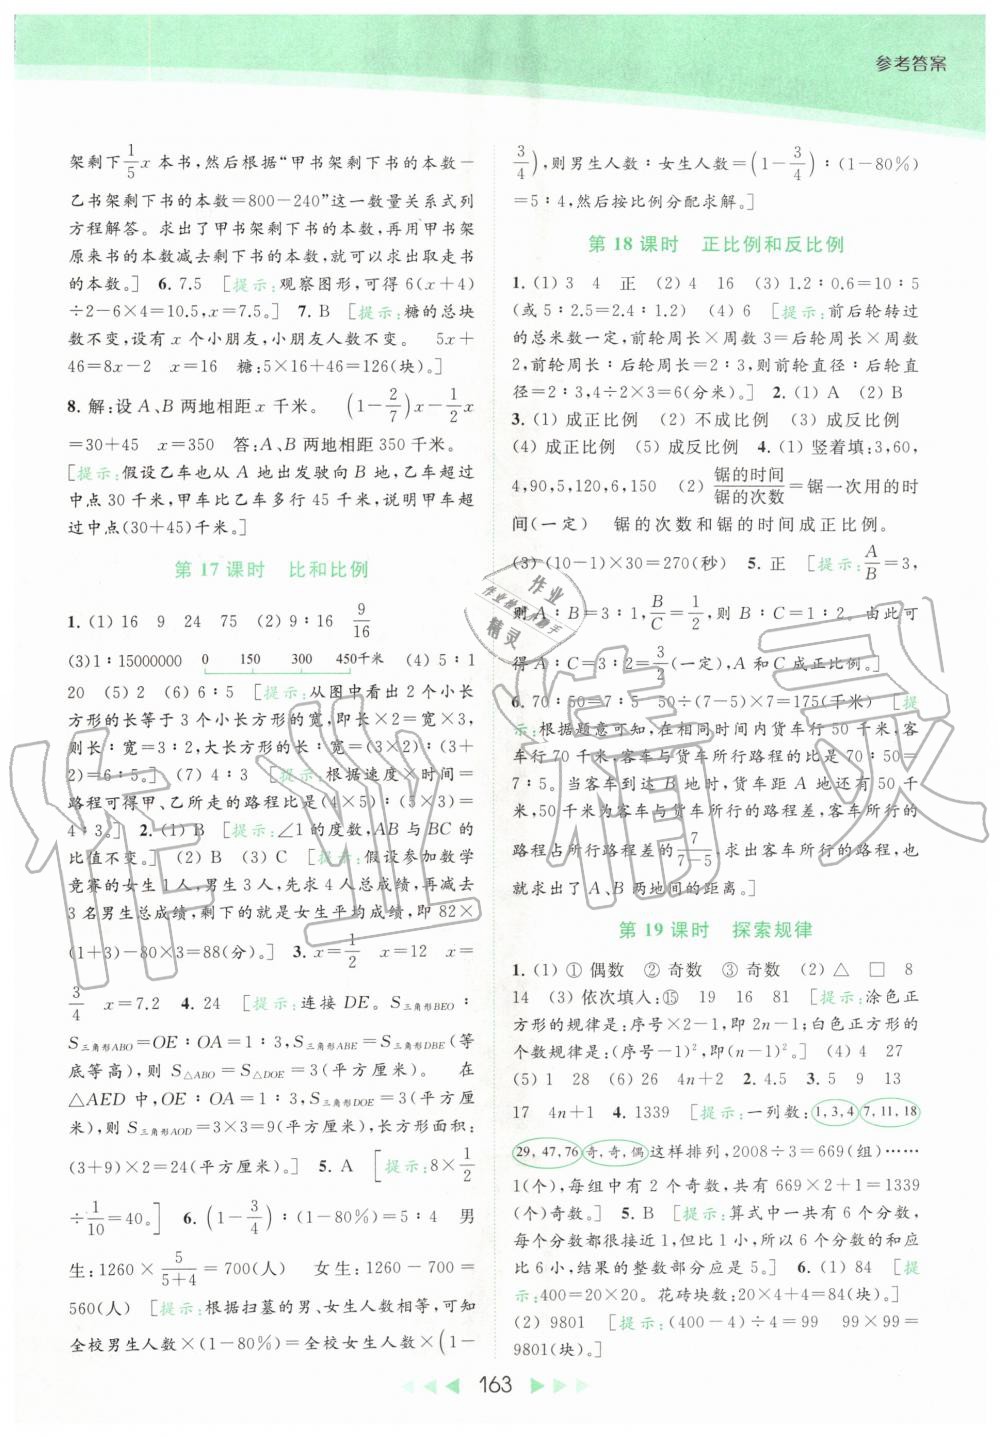 参考答案
架剩下1/5x 本书,然后根据“甲书架剩下书的本数－
乙书架剩下书的本数＝800－240”这一数量关系式列
方程解答。 求出了甲书架剩下书的本数,再用甲书架
原来书的本数减去剩下书的本数,就可以求出取走书
的本数。] 6. 7.5 [提示:观察图形,可得 6(x＋4)
÷2－6×4＝10.5,x＝7.5。] 7. B [提示:糖的总块
数不变,设有 x 个小朋友,小朋友人数不变。 5x＋
46＝8x－2 x＝16 糖:5×16＋46＝126(块)。]
8. 解:设 A、B 两地相距 x 千米。 (1－2/7)x－1/2x
＝30＋45 x＝350 答:A、B 两地相距 350 千米。
[提示:假设乙车也从 A 地出发驶向 B 地,乙车超过
中点 30 千米,甲车比乙车多行 45 千米,说明甲车超
过中点(30＋45)千米。]
第 17 课时 比和比例
1. (1) 16 9 24 75 (2) 9∶16 9/16
(3)1∶15000000 0 150 300 450千米 (4) 5∶1
20 (5) 2 (6) 6∶5 [提示:从图中看出 2 个小长
方形的长等于 3 个小长方形的宽,即长×2＝宽×3,
则长∶宽＝3∶2,大长方形的长∶宽＝(3×2)∶(3＋
2)＝6∶5。] (7) 4∶3 [提示:根据速度×时间＝
路程可得甲、乙所走的路程比是(4×5)∶(5×3)＝
4∶3。] 2. (1) B [提示:∠1 的度数,AB 与 BC 的
比值不变。] (2) B (3) C [提示:假设参加数学
竞赛的女生 1 人,男生 3 人,先求 4 人总成绩,再减去
3 名男生总成绩,剩下的就是女生平均成绩,即 82×
(1＋3)－80×3＝88(分)。] 3. x＝1/2 x＝12 x＝
3/4 x＝7.2 4. 24 [提示:连接 DE。S三角形BEO∶
S三角形ABO＝OE∶OA＝1∶3,S三角形ABE＝S三角形DBE(等
底等高),则 S△ABO＝S△DOE＝3(平方厘米)。 在
△AED 中,OE∶OA＝1∶3,S三角形DOE＝3(平方厘
米),则 S三角形AOD＝3×3＝9(平方厘米),长方形面积:
(3＋9)×2＝24(平方厘米)。] 5. A [提示:8×1/2
÷1/10＝40。] 6. (1－3/4)∶(1－80%)＝5∶4 男
生:1260×5/(5＋4)＝700(人) 女生:1260－700＝
560(人) [提示:根据扫墓的男、女生人数相等,可知
全校男生人数×(1－80%)＝全校女生人数×(1－
3/4),则男生人数∶女生人数＝(1－3/4)∶(1－80%)
＝5∶4,然后按比例分配求解。]
第 18 课时 正比例和反比例
1. (1) 3 4 正 (2) 4 16 (3) 1.2∶0.6＝10∶5
(或 5∶2.5＝2.4∶1.2) (4) 6 [提示:前后轮转过
的总米数一定,前轮周长×周数＝后轮周长×周数
2,前轮周长∶后轮周长＝2∶3,则前轮直径∶后轮直
径＝2∶3,4÷2×3＝6(分米)。] 2. (1) A (2) B
3. (1) 成正比例 (2) 不成比例 (3) 成反比例
(4) 成正比例 (5) 成反比例 4. (1) 竖着填:3,60,
4,90,5,120,6,150 (2) 锯的时间/锯的次数＝锯一次用的时
间(一定) 锯的次数和锯的时间成正比例。
(3) (10－1)×30＝270(秒) 5. 正 [提示:A/B＝3,
则 A∶B＝3∶1,B/C＝1/2,则 B∶C＝1∶2。由此可
得 A∶C＝3∶2＝3/2(一定),A 和 C 成正比例。]
6. 70∶50＝7∶5 50÷(7－5)×7＝175(千米) [提
示:根据题意可知,在相同时间内货车行 50 千米,客
车行 70 千米,客车与货车所行路程的比是 70∶50＝
7∶5。当客车到达 B 地时,货车距 A 地还有 50 千
米,50 千米为客车与货车所行的路程差,客车所行的
路程占所行路程差的7/(7－5),求出客车所行的路程,也
就求出了 A、B 两地间的距离。]
第 19 课时 探索规律
1. (1) ① 偶数 ② 奇数 ③ 奇数 (2) △ □ 8
14 (3) 依次填入:⑮ 19 16 81 [提示:涂色正
方形的规律是:序号×2－1,即 2n－1;白色正方形的
个数规律是:(序号－1)²,即(n－1)²。] (4) 4 27
(5) 1 28 (6) 26 4n＋2 2. 4.5 3. 5 9 13
17 4n＋1 4. 1339 [提示:一列数:1,3,4 7,11,18
29,47,76 奇,奇,偶 这样排列,2008÷3＝669(组)……
1(个),每组中有 2 个奇数,共有 669×2＋1＝1339
(个)奇数。] 5. B [提示:算式中一共有 6 个分数,
每个分数都很接近 1,但比 1 小,所以 6 个分数的和应
比 6 小,结果的整数部分应是 5。] 6. (1) 84 [提
示:400＝20×20。花砖块数:20×4＋4＝84(块)。]
(2) 9801 [提示:(400－4)÷4＝99 99×99＝
9801(块)。]
163
作业精灵